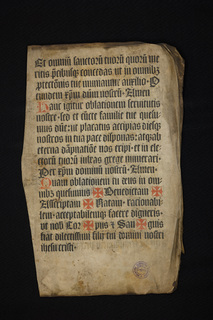 Et omniū sanctorū tuorū quorū me
ritis p̄cibusq; concedas ut in omnibꝫ
ptectōnis tue muniamur auxilio. P
eundem xp̄m dn̄m nostrū. Amen
Hanc igitur oblationem seruitutis
nostre. sed et cūcte familie tue quesu
mus dn̄e: ut placatus accipias diesqꝫ
nostros in tua pace disponas. atqꝫ ab
eterna dāpnatiōe nos eripi. et in ele
ctorū tuorū iubeas grege numerari.
Per xp̄m dn̄m nostrū. Amen.
Quam oblationem tu deus in om
nibꝫ quesumus ✠ Benedictam ✠
Ascriptam ✠ Ratam. racionabi
lem. acceptabilemqꝫ facere digneris.
ut nobis Cor ✠ pus et San ✠ guis
fiat dilectissimi filii tui domini nostri
ihesu cristi.